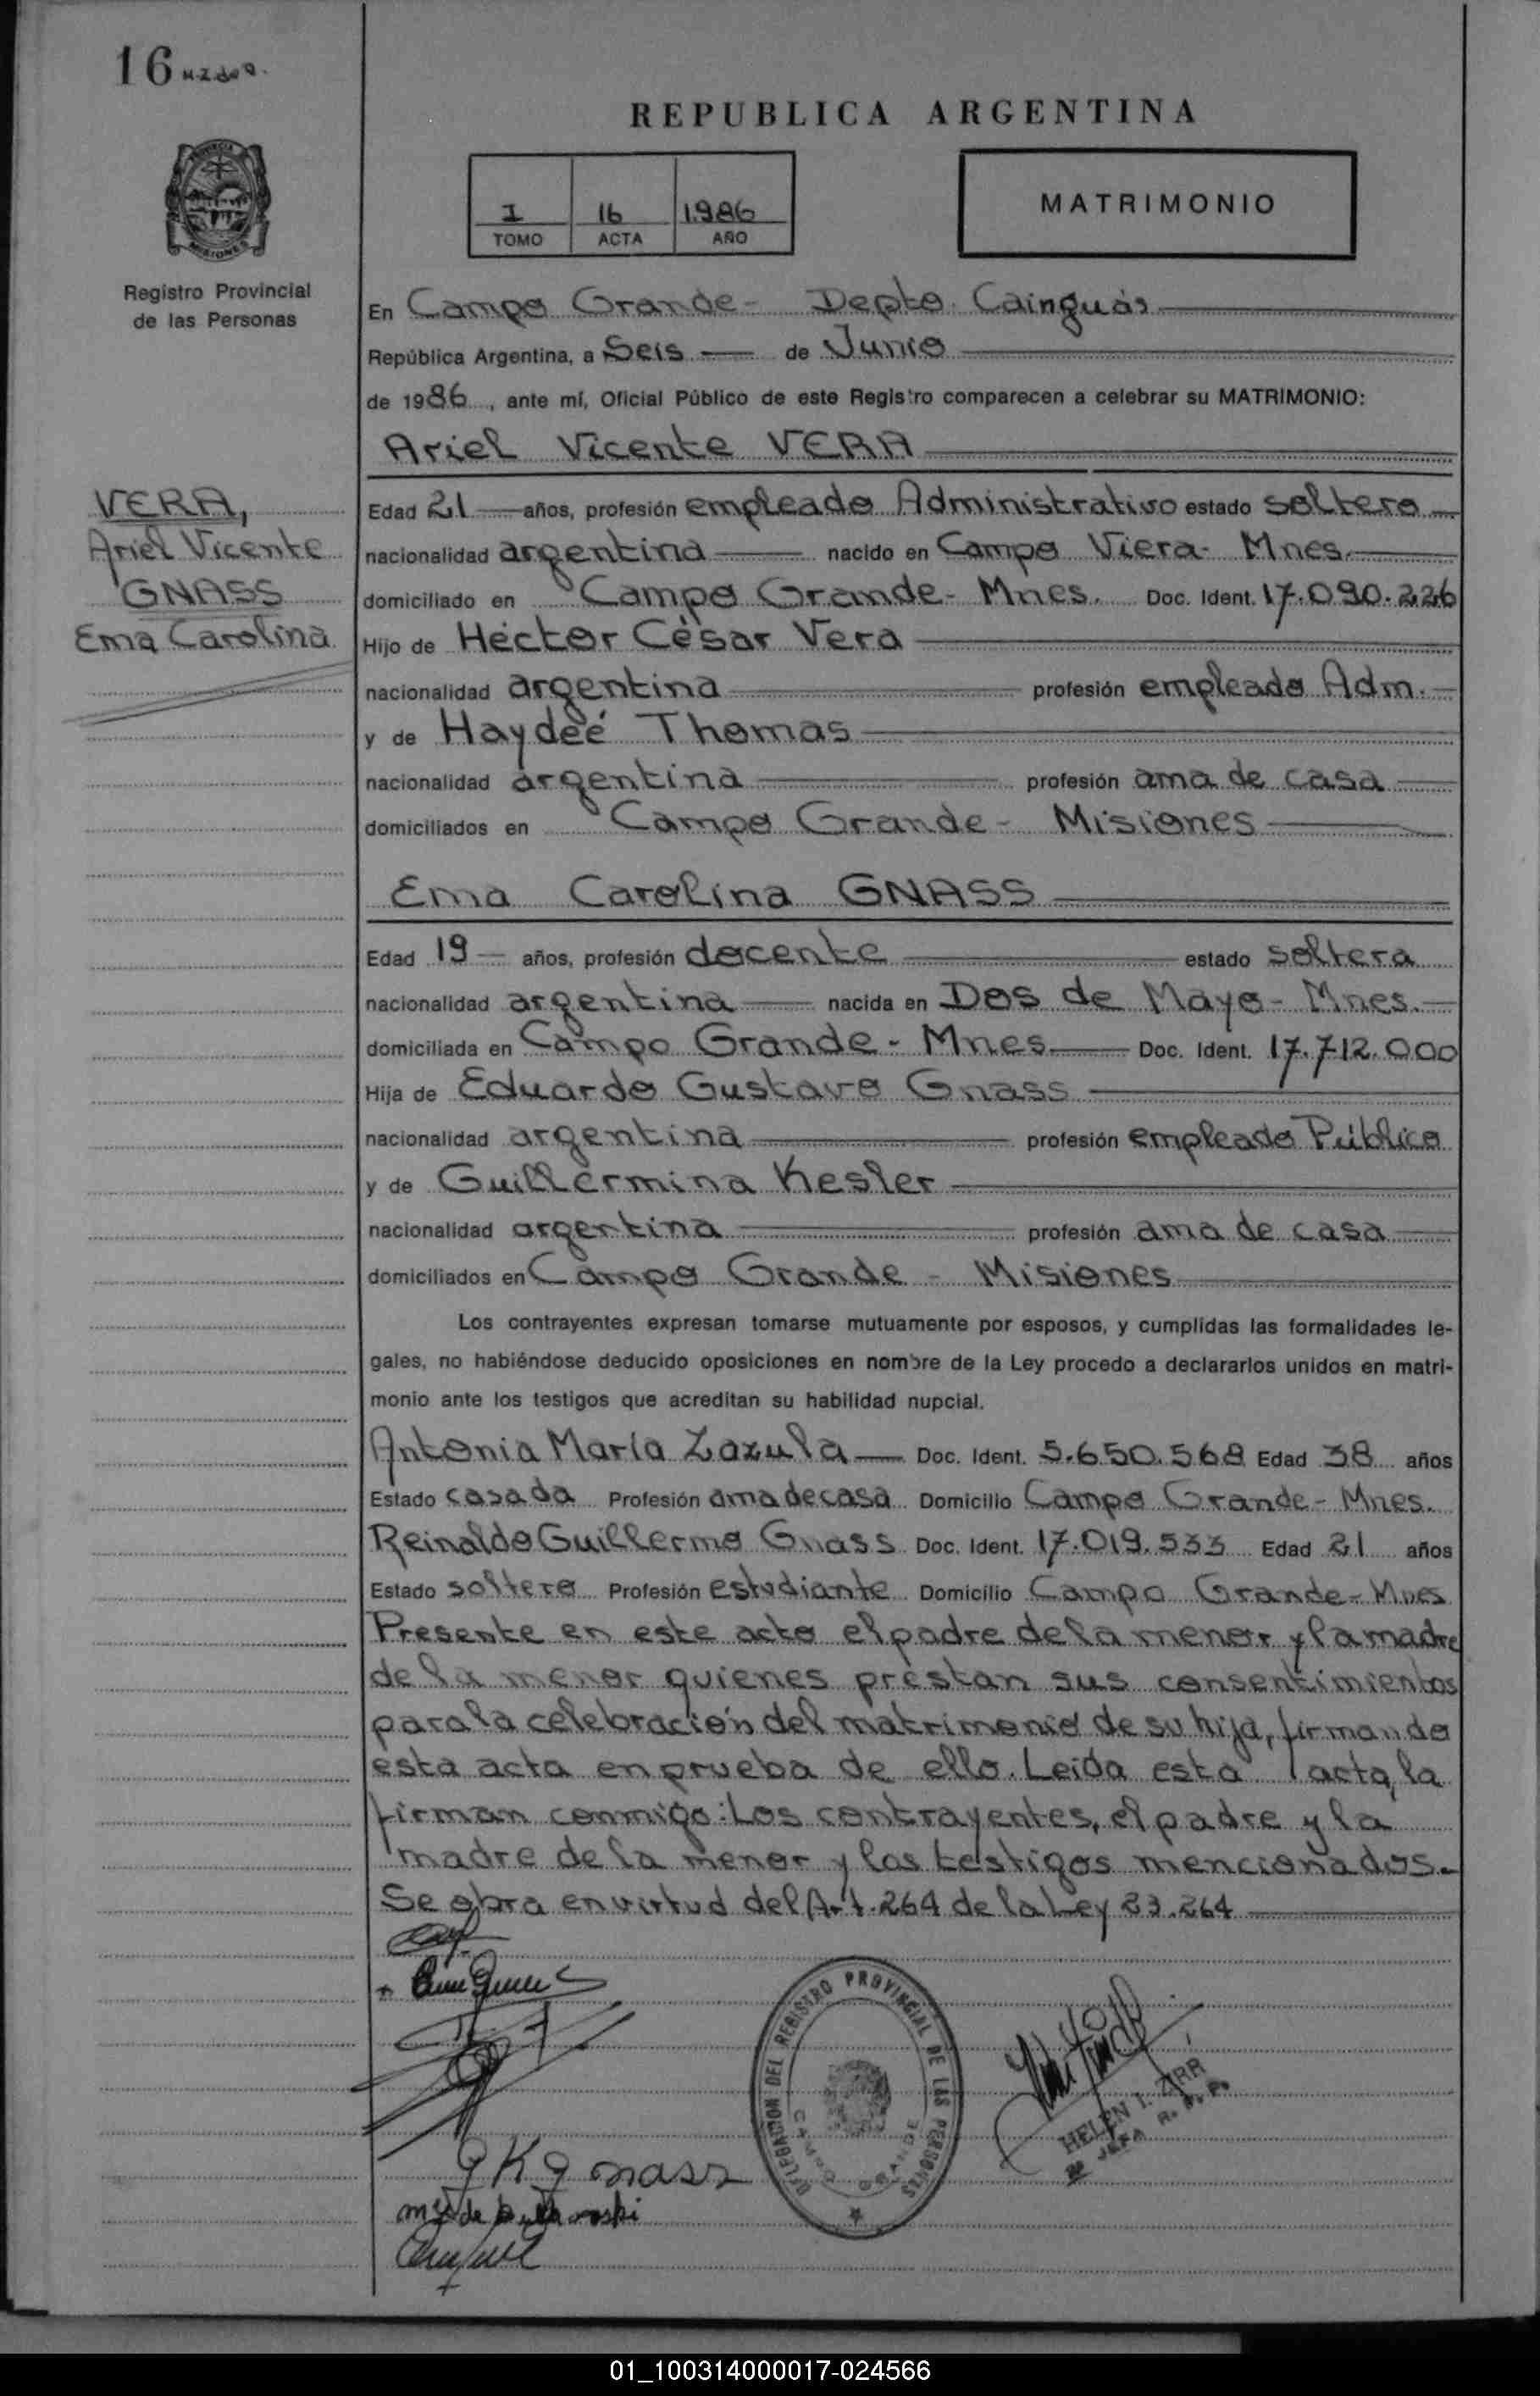 16
REPUBLICA ARGENTINA
1 16 1986
TOMO ACTA AÑO
MATRIMONIO
Registro Provincial
de las Personas
En Campo Grande - Depto. Cainguás
República Argentina, a Seis de Junio
de 1986, ante mí, Oficial Público de este Registro comparecen a celebrar su MATRIMONIO:
Ariel Vicente VERA
VERA,
Ariel Vicente
GNASS
Ema Carolina
Edad 21 años, profesión empleado Administrativo estado soltero
nacionalidad argentina nacido en Campo Viera - Mnes.
domiciliado en Campo Grande - Mnes. Doc. Ident. 17.090.226
Hijo de Héctor César Vera
nacionalidad argentina profesión empleado Adm.
y de Haydeé Thomas
nacionalidad argentina profesión ama de casa
domiciliados en Campo Grande - Misiones
Ema Carolina GNASS
Edad 19 años, profesión docente estado soltera
nacionalidad argentina nacida en Dos de Mayo - Mnes.
domiciliada en Campo Grande - Mnes Doc. Ident. 17.712.000
Hija de Eduardo Gustavo Gnass
nacionalidad argentina profesión empleado Público
y de Guillermina Kesler
nacionalidad argentina profesión ama de casa
domiciliados en Campo Grande - Misiones
Los contrayentes expresan tomarse mutuamente por esposos, y cumplidas las formalidades le-
gales, no habiéndose deducido oposiciones en nombre de la Ley procedo a declararlos unidos en matri-
monio ante los testigos que acreditan su habilidad nupcial.
Antonia María Zazula Doc. Ident. 5.650.568 Edad 38 años
Estado casada Profesión ama de casa Domicilio Campo Grande - Mnes.
Reinaldo Guillermo Gnass Doc. Ident. 17.019.533 Edad 21 años
Estado soltero Profesión estudiante Domicilio Campo Grande - Mnes
Presente en este acto el padre de la menor y la madre
de la menor quienes préstan sus consentimientos
para la celebración del matrimonio de su hija, firmando
esta acta en prueba de ello. Leída esta acta, la
firman conmigo: Los contrayentes, el padre y la
madre de la menor y los testigos mencionados.-
Se obra en virtud del Art. 264 de la Ley 23.264
DELEGACION DEL REGISTRO PROVINCIAL DE LAS PERSONAS
CAMPO GRANDE
HELEN I. ZIRR
JEFA R. P. P.
G K Gnass
01_100314000017-024566